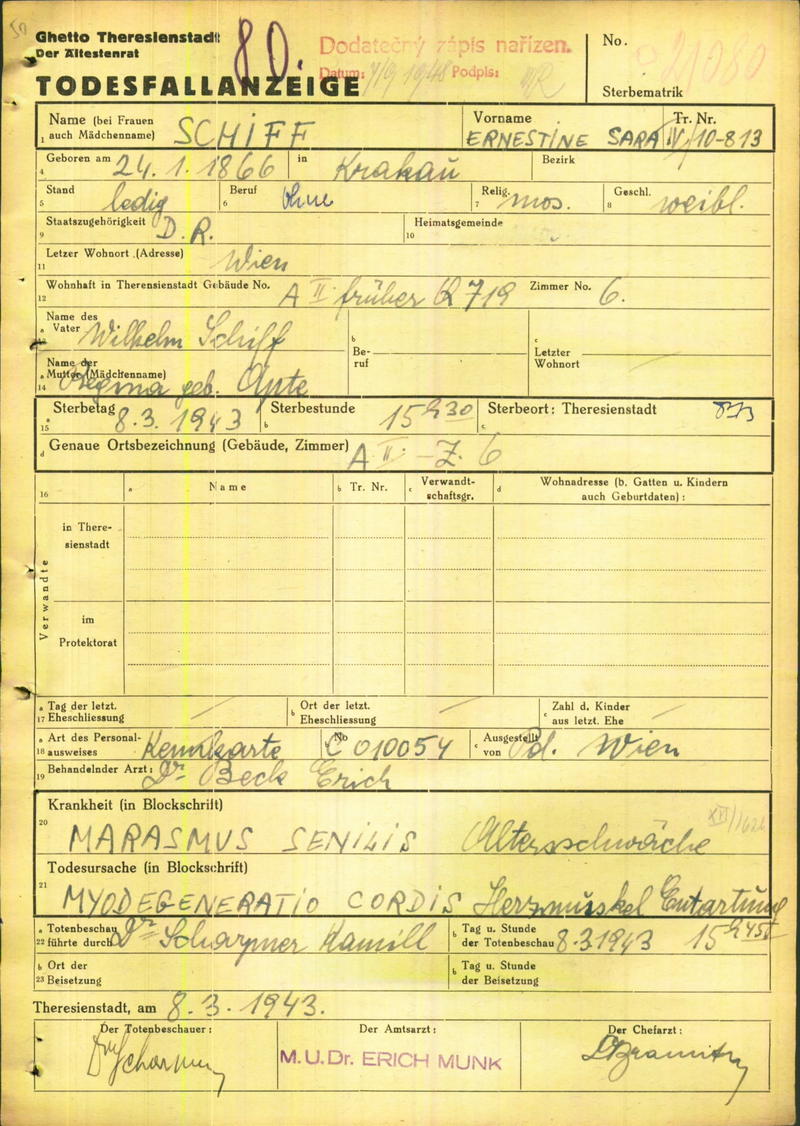 Ghetto Theresienstadt
Der Ältestenrat
80.
Dodatečný zápis nařízen.
Datum: 7/9 1948 Podpis:
No.
Sterbematrik
TODESFALLANZEIGE
Name (bei Frauen auch Mädchenname) SCHIFF
Vorname ERNESTINE SARA
Tr. Nr. IV/10-813
1
4 Geboren am 24. 1. 1866 in Krakau Bezirk
5 Stand ledig
6 Beruf Ohne
7 Relig. mos.
8 Geschl. weibl.
9 Staatszugehörigkeit D. R.
10 Heimatsgemeinde
11 Letzer Wohnort (Adresse) Wien
12 Wohnhaft in Therensienstadt Gebäude No. A II früher Q 719 Zimmer No. 6.
a Name des Vater Wilhelm Schiff
b Beruf
c Letzter Wohnort
14 a Name der Mutter (Mädchenname) Regina geb. Apte
15 a Sterbetag 8. 3. 1943 b Sterbestunde 15 h 30 c Sterbeort: Theresienstadt
d Genaue Ortsbezeichnung (Gebäude, Zimmer) A II. - Z. 6
16 a Name b Tr. Nr. c Verwandtschaftsgr. d Wohnadresse (b. Gatten u. Kindern auch Geburtdaten):
Verwandte
in Theresienstadt
im Protektorat
17 a Tag der letzt. Eheschliessung
b Ort der letzt. Eheschliessung
c Zahl d. Kinder aus letzt. Ehe
18 a Art des Personalausweises Kennkarte
b No C 010054
c Ausgestellt von Wien
19 Behandelnder Arzt: Dr Beck Erich
20 Krankheit (in Blockschrift)
MARASMUS SENILIS Altersschwäche
21 Todesursache (in Blockschrift)
MYODEGENERATIO CORDIS Herzmuskel Entartung
22 a Totenbeschau führte durch Dr Kamill
b Tag u. Stunde der Totenbeschau 8.3.1943 15 h 45
23 b Ort der Beisetzung
b Tag u. Stunde der Beisetzung
Theresienstadt, am 8. 3. 1943.
Der Totenbeschauer:
Der Amtsarzt:
M.U.Dr. ERICH MUNK
Der Chefarzt: